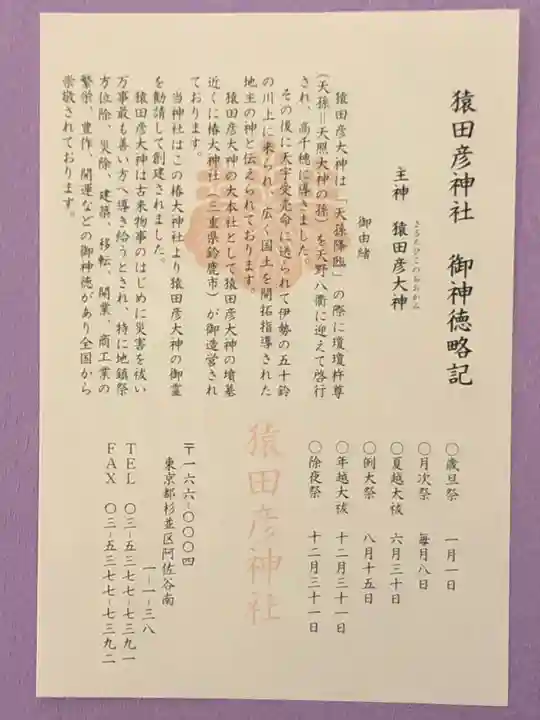 猿田彦神社　御神徳略記
主神　猿田彦大神
さるたひこのおおかみ
御由緒
猿田彦大神は「天孫降臨」の際に瓊瓊杵尊
（天孫＝天照大神の孫）を天野八衢に迎えて啓行
され、高千穂に導きました。
その後に天宇受売命に送られて伊勢の五十鈴
の川上に来られ、広く国土を開拓指導された
地主の神と伝えられております。
猿田彦大神の大本社として猿田彦大神の墳墓
近くに椿大神社（三重県鈴鹿市）が御造営され
ております。
当神社はこの椿大神社より猿田彦大神の御霊
を勧請して創建されました。
猿田彦大神は古来物事のはじめに災害を祓い
万事最も善い方へ導き給うとされ、特に地鎮祭
方位除、災除、建築、移転、開業、商工業の
繁栄、豊作、開運などの御神徳があり全国から
崇敬されております。
〇歳旦祭　一月一日
〇月次祭　毎月八日
〇夏越大祓　六月三十日
〇例大祭　八月十五日
〇年越大祓　十二月三十一日
〇除夜祭　十二月三十一日
猿田彦神社
〒一六六-〇〇〇四
東京都杉並区阿佐谷南
一-一-三八
TEL　〇三-五三七七-七三九一
FAX　〇三-五三七七-七三九二